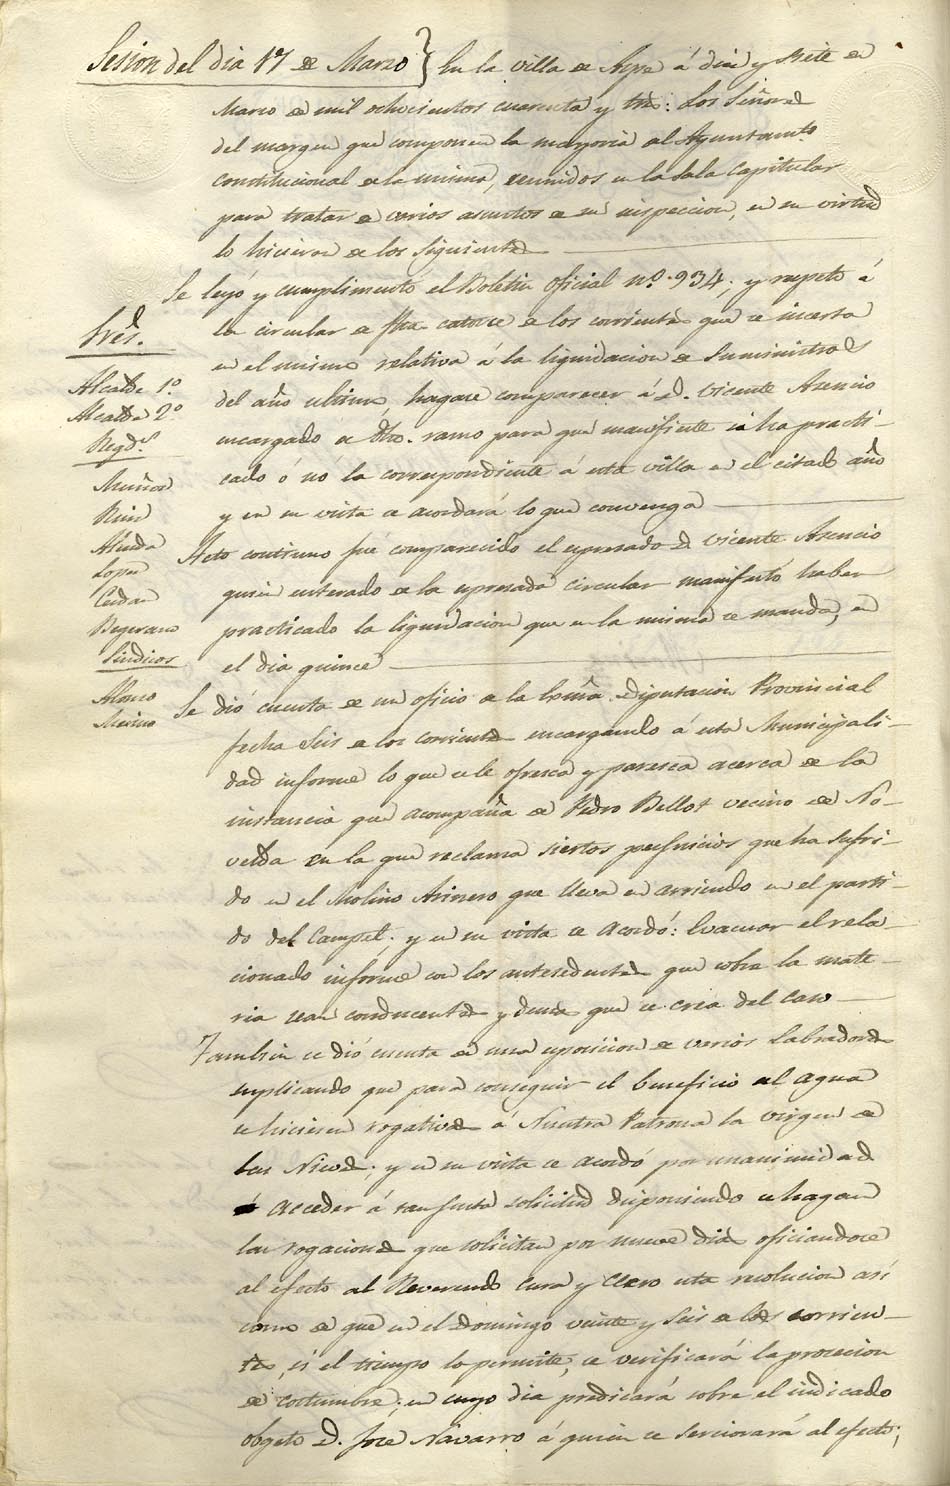 Sesion del dia 17 de Marzo } En la villa de Aspe á diez y siete de
Marzo de mil ochocientos cuarenta y tres: Los Señores
del margen que componen la mayoria del Ayuntamto
constitucional de la misma, reunidos en la Sala Capitular
para tratar de varios asuntos de su inspeccion, en su virtud
lo hicieron de los siguientes
Se leyó y cumplimentó el Boletin oficial nº. 934; y respeto á
la circular de fha. catorce de los corrientes que se incerta
en el mismo relativa á la liquidacion de Suministros
del año ultimo hagase comparecer á D. Vicente Asencio
encargado de dho. ramo para que manifieste si ha practi-
cado ó nó la correspondiente á esta villa en el citado año
y en su vista se acordará lo que convenga
Acto continuo fué comparecido el espresado D. Vicente Asencio
quien enterado de la espresada circular manifestó haber
practicado la liquidacion que en la misma se manda, en
el dia quince
Se dió cuenta de un oficio de la Exma. Diputacion Provincial
fecha Seis de los corrientes encargando á esta Municipali-
dad informe lo que se le ofresca y paresca acerca de la
instancia que acompaña de Pedro Bellot vecino de No-
velda en la que reclama siertos perjuicios que ha sufri-
do en el Molino Arinero que lleva en arriendo en el parti-
do del Campet; y en su vista se Acordó: Evacuar el rela-
cionado informe con los antesedentes que sobre la mate-
ria sean conducentes y demas que se crea del caso
Tambien se dió cuenta de una esposicion de varios Labradores
suplicando que para conseguir el beneficio del agua
se hiciesen rogativas á Nuestra Patrona la Virgen de
las Nieves; y en su vista se acordó por unanimidad
acceder á tan justa solicitud disponiendo se hagan
las rogaciones que solicitan por nueve dias oficiandose
al efecto al Reverendo Cura y Clero esta resolucion así
como de que en el Domingo veinte y Seis de los corrien-
tes, si el tiempo lo permite, se verificará la procecion
de costumbre; en cuyo dia predicará sobre el indicado
obgeto D. José Navarro á quien se serciorará al efecto;
Sres.
Alcalde 1º.
Alcalde 2º
Regds.
Muñoz
Ruiz
Almda
Lopez
Cerdan
Begerano
Sindicos
Alonso
Merino